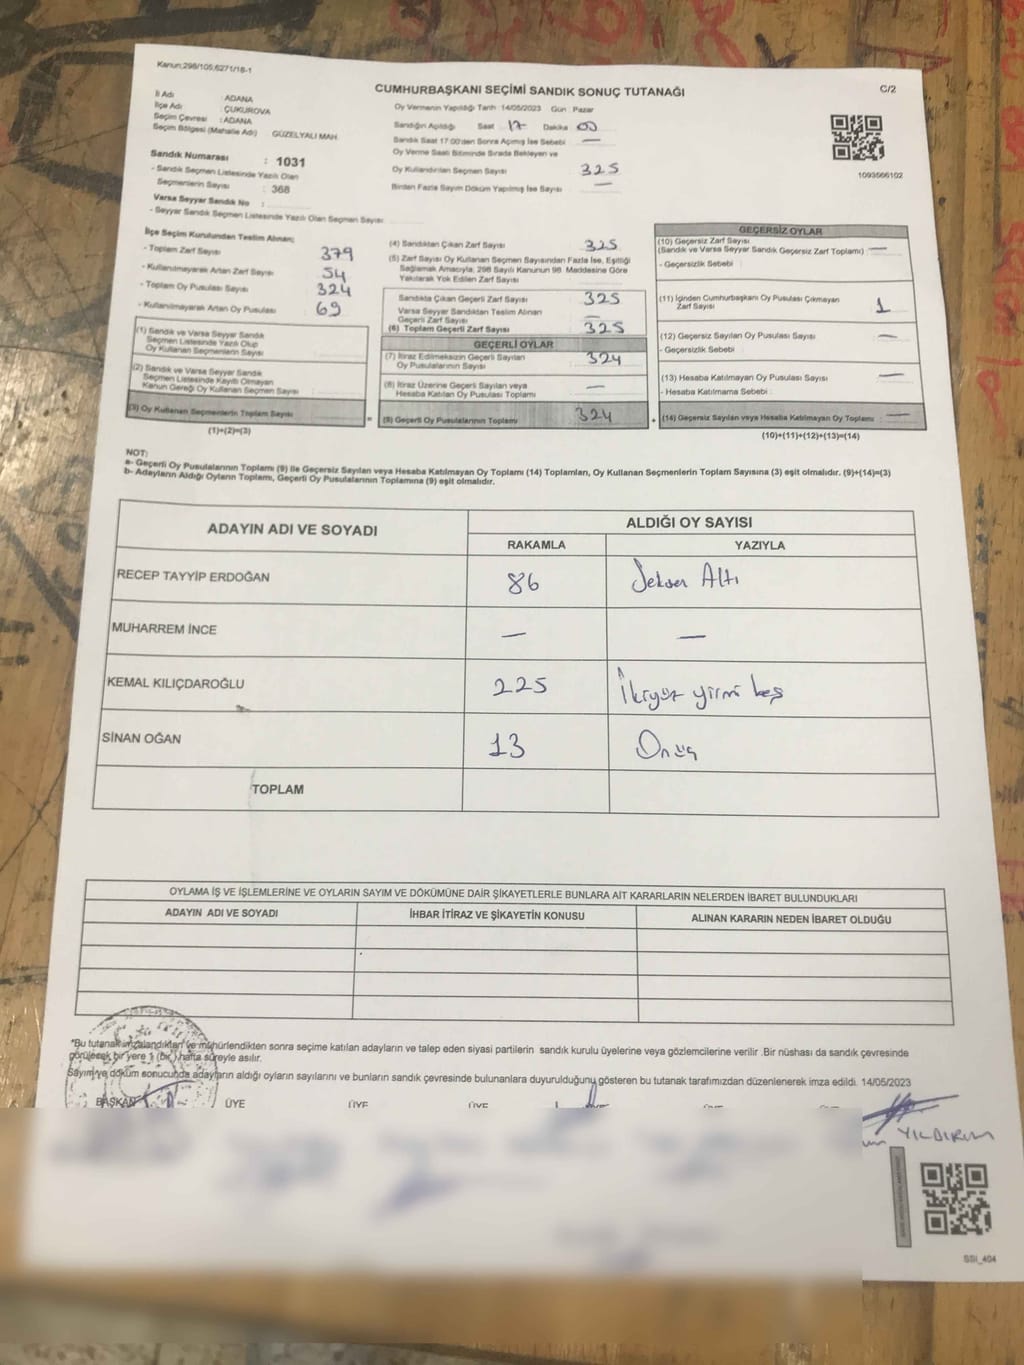 Kanun;298/105,6271/18-1
CUMHURBAŞKANI SEÇİMİ SANDIK SONUÇ TUTANAĞI
C/2
İl Adı : ADANA
İlçe Adı : ÇUKUROVA
Seçim Çevresi : ADANA
Seçim Bölgesi (Mahalle Adı) GÜZELYALI MAH.
Sandık Numarası : 1031
- Sandık Seçmen Listesinde Yazılı Olan
Seçmenlerin Sayısı : 368
Varsa Seyyar Sandık No :
- Seyyar Sandık Seçmen Listesinde Yazılı Olan Seçmen Sayısı
Oy Vermenin Yapıldığı Tarih 14/05/2023 Gün : Pazar
Sandığın Açıldığı Saat 17 Dakika 00
Sandık Saat 17:00'den Sonra Açılmış İse Sebebi —
Oy Verme Saati Bitiminde Sırada Bekleyen ve
Oy Kullandırılan Seçmen Sayısı 325
Birden Fazla Sayım Döküm Yapılmış İse Sayısı —
1093566102
İlçe Seçim Kurulundan Teslim Alınan;
- Toplam Zarf Sayısı 379
- Kullanılmayarak Artan Zarf Sayısı 54
- Toplam Oy Pusulası Sayısı 324
- Kullanılmayarak Artan Oy Pusulası 69
(1) Sandık ve Varsa Seyyar Sandık
Seçmen Listesinde Yazılı Olup
Oy Kullanan Seçmenlerin Sayısı
(2) Sandık ve Varsa Seyyar Sandık
Seçmen Listesinde Kayıtlı Olmayan
Kanun Gereği Oy Kullanan Seçmen Sayısı
(3) Oy Kullanan Seçmenlerin Toplam Sayısı
(1)+(2)=(3)
(4) Sandıktan Çıkan Zarf Sayısı 325
(5) Zarf Sayısı Oy Kullanan Seçmen Sayısından Fazla İse, Eşitliği
Sağlamak Amacıyla, 298 Sayılı Kanunun 98. Maddesine Göre
Yakılarak Yok Edilen Zarf Sayısı
Sandıkta Çıkan Geçerli Zarf Sayısı 325
Varsa Seyyar Sandıktan Teslim Alınan
Geçerli Zarf Sayısı —
(6) Toplam Geçerli Zarf Sayısı 325
GEÇERLİ OYLAR
(7) İtiraz Edilmeksizin Geçerli Sayılan
Oy Pusulalarının Sayısı 324
(8) İtiraz Üzerine Geçerli Sayılan veya
Hesaba Katılan Oy Pusulası Toplamı —
= (9) Geçerli Oy Pusulalarının Toplamı 324
GEÇERSİZ OYLAR
(10) Geçersiz Zarf Sayısı
(Sandık ve Varsa Seyyar Sandık Geçersiz Zarf Toplamı) —
- Geçersizlik Sebebi :
(11) İçinden Cumhurbaşkanı Oy Pusulası Çıkmayan
Zarf Sayısı 1
(12) Geçersiz Sayılan Oy Pusulası Sayısı —
- Geçersizlik Sebebi :
(13) Hesaba Katılmayan Oy Pusulası Sayısı —
- Hesaba Katılmama Sebebi :
+ (14) Geçersiz Sayılan veya Hesaba Katılmayan Oy Toplamı —
(10)+(11)+(12)+(13)=(14)
NOT:
a- Geçerli Oy Pusulalarının Toplamı (9) ile Geçersiz Sayılan veya Hesaba Katılmayan Oy Toplamı (14) Toplamları, Oy Kullanan Seçmenlerin Toplam Sayısına (3) eşit olmalıdır. (9)+(14)=(3)
b- Adayların Aldığı Oyların Toplamı, Geçerli Oy Pusulalarının Toplamına (9) eşit olmalıdır.
ADAYIN ADI VE SOYADI
ALDIĞI OY SAYISI
RAKAMLA YAZIYLA
RECEP TAYYİP ERDOĞAN 86 Seksen Altı
MUHARREM İNCE — —
KEMAL KILIÇDAROĞLU 225 İkiyüz yirmi beş
SİNAN OĞAN 13 Onüç
TOPLAM
OYLAMA İŞ VE İŞLEMLERİNE VE OYLARIN SAYIM VE DÖKÜMÜNE DAİR ŞİKAYETLERLE BUNLARA AİT KARARLARIN NELERDEN İBARET BULUNDUKLARI
ADAYIN ADI VE SOYADI İHBAR İTİRAZ VE ŞİKAYETİN KONUSU ALINAN KARARIN NEDEN İBARET OLDUĞU
*Bu tutanak imzalandıktan ve mühürlendikten sonra seçime katılan adayların ve talep eden siyasi partilerin sandık kurulu üyelerine veya gözlemcilerine verilir .Bir nüshası da sandık çevresinde
görülecek bir yere 1 (bir ) hafta süreyle asılır.
Sayım ve döküm sonucunda adayların aldığı oyların sayılarını ve bunların sandık çevresinde bulunanlara duyurulduğunu gösteren bu tutanak tarafımızdan düzenlenerek imza edildi. 14/05/2023
BAŞKAN ÜYE ÜYE ÜYE ÜYE
YILDIRIM
SSI_404